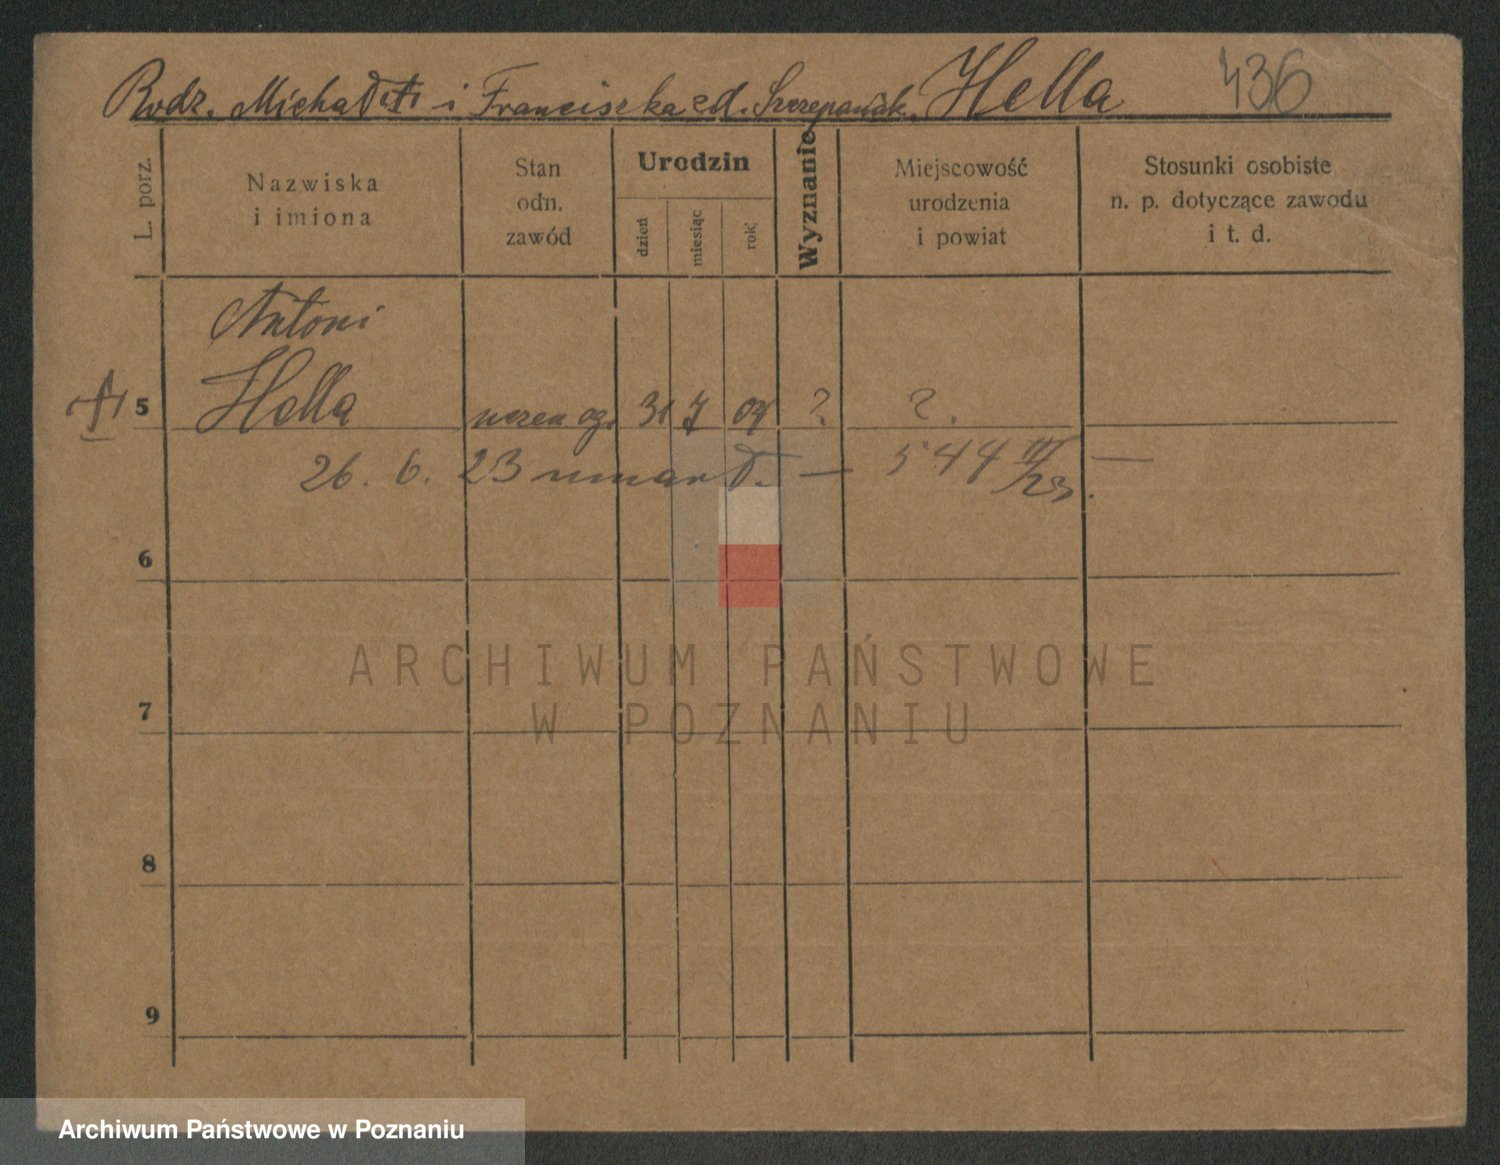 Rodz. Michał i Franciszka zd. Szczepaniak. Hella 436
L. porz.
Nazwiska
i imiona
Stan
odn.
zawód
Urodzin
dzień
miesiąc
rok
Wyznanie
Miejscowość
urodzenia
i powiat
Stosunki osobiste
n. p. dotyczące zawodu
i t. d.
Antoni
5 Hella uczeń og. 31 7 04 ? ?.
26. 6. 23 umarł. — 544 III/23. —
6
7
8
9
ARCHIWUM PAŃSTWOWE
W POZNANIU
Archiwum Państwowe w Poznaniu